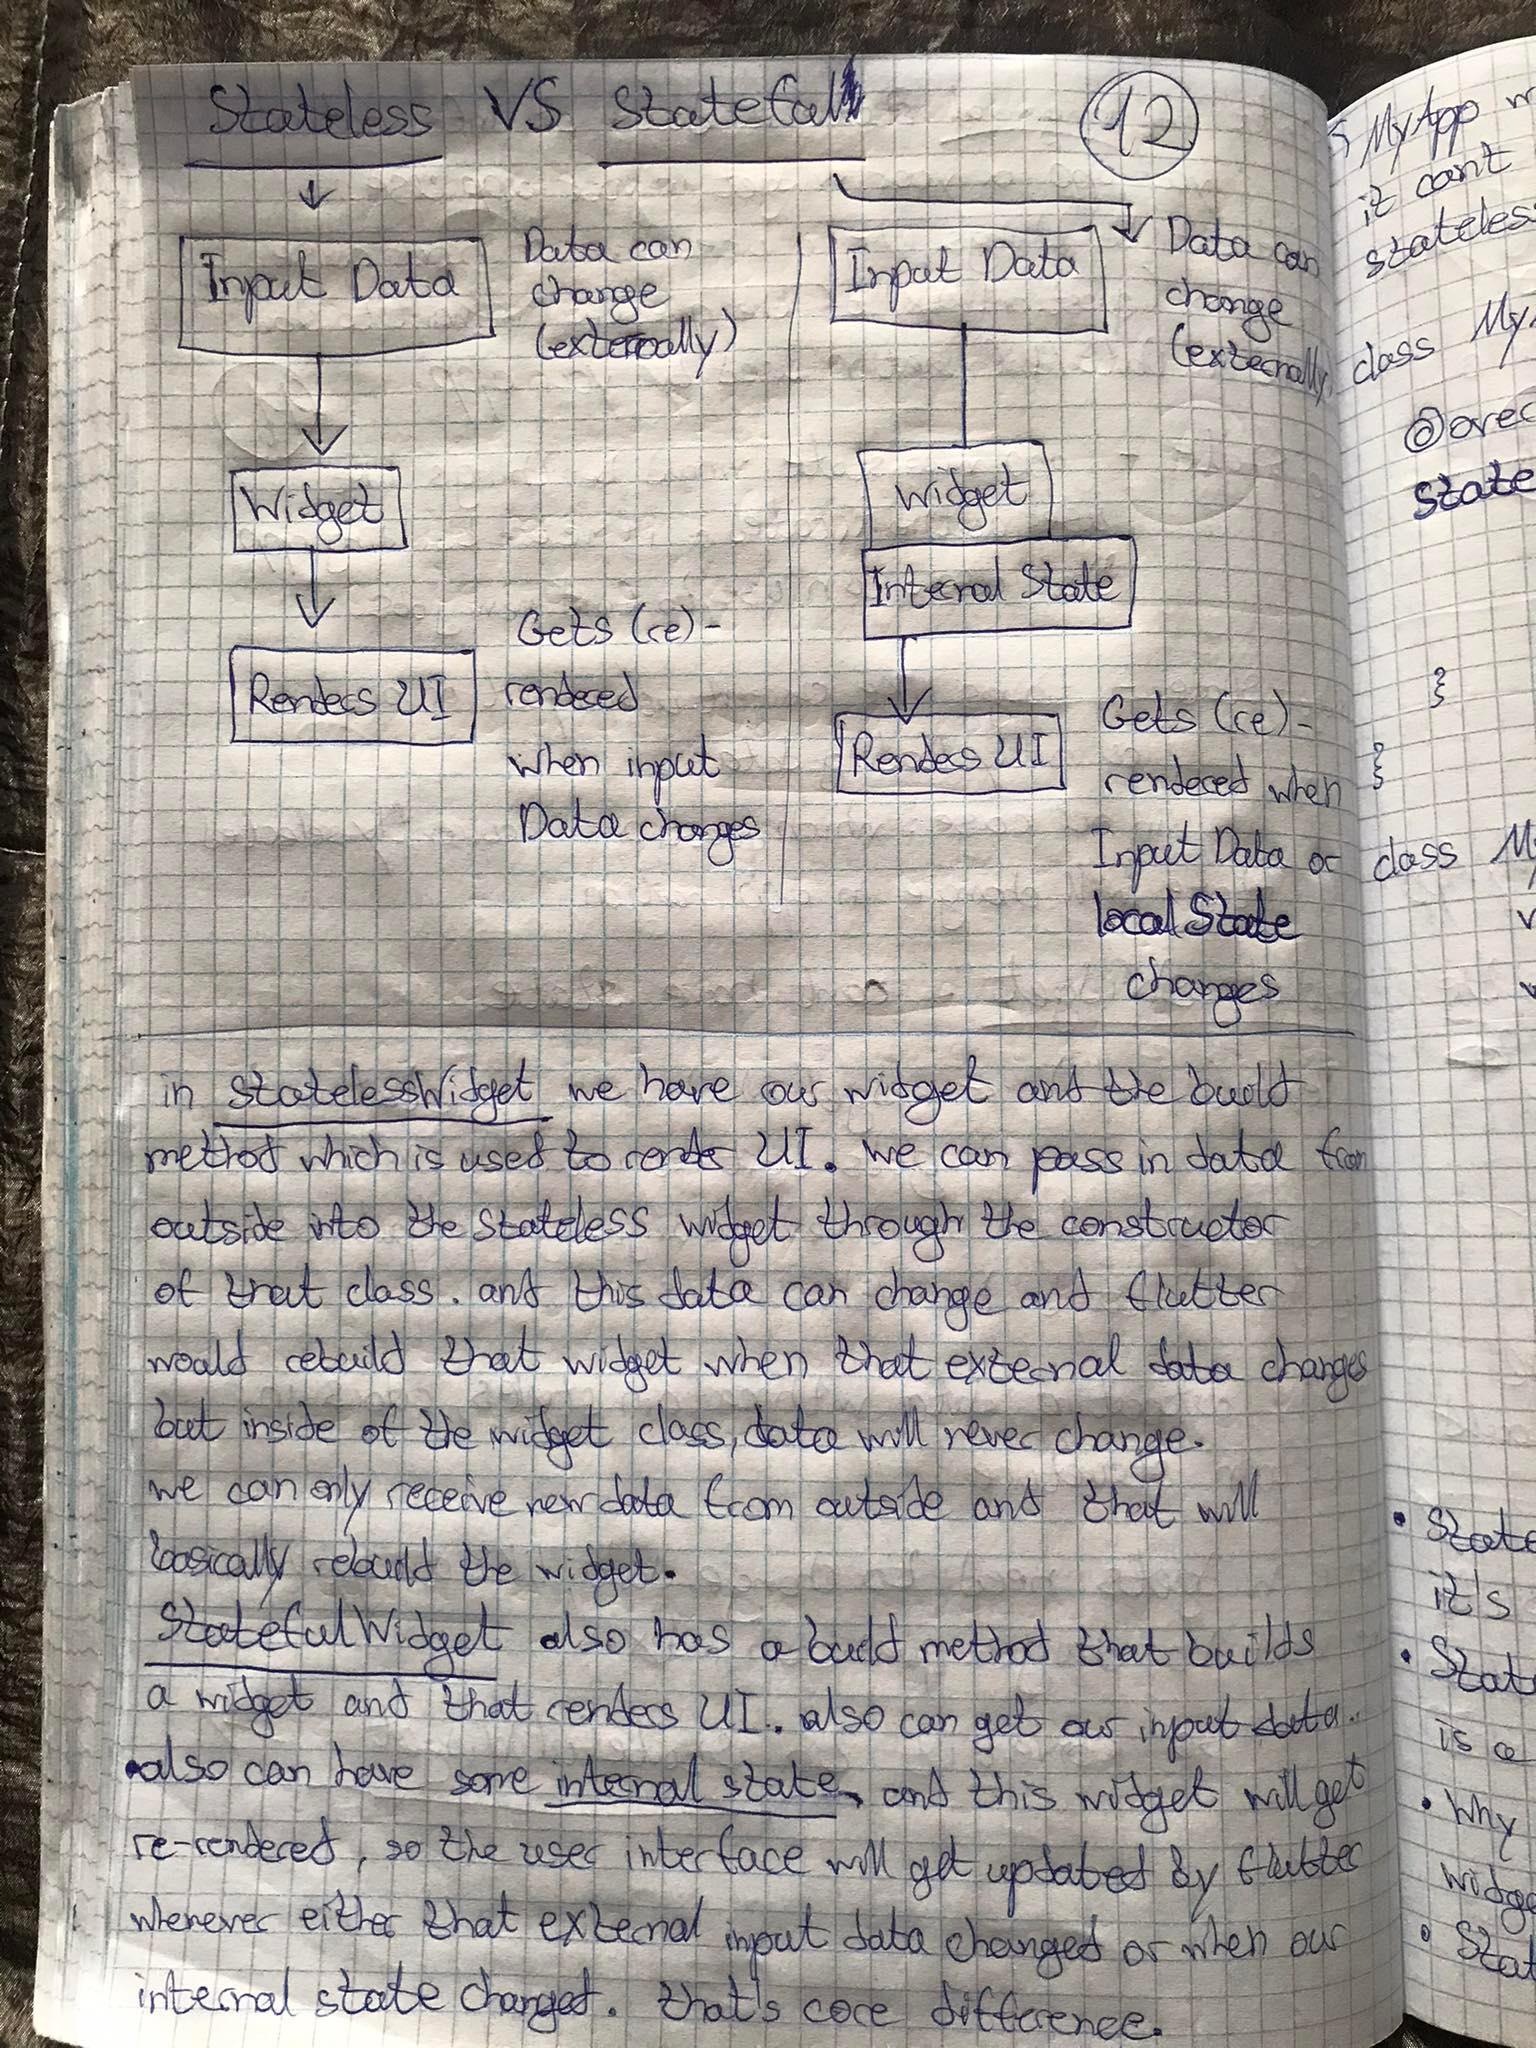 Stateless VS Stateful
12
Input Data
Data can
change
(externally)
Widget
Renders UI
Gets (re)-
rendered
when input
Data changes
Input Data
Data can
change
(externally
Widget
Internal State
Renders UI
Gets (re)-
rendered when
Input Data or
local State
changes
in StatelessWidget we have our widget and the build
method which is used to render UI. we can pass in data from
outside into the stateless widget through the constructor
of that class. and this data can change and flutter
would rebuild that widget when that external data changes
but inside of the widget class, data will never change.
we can only receive new data from outside and that will
basically rebuild the widget.
StatefulWidget also has a build method that builds
a widget and that renders UI. also can get our input data.
•also can have some internal state, and this widget will get
re-rendered, so the user interface will get updated by flutter
whenever either that external input data changed or when our
internal state changed. that's core difference.
MyApp
it can't
stateless
class My
@over
State
}
}
class M
• State
it's
• Stat
is a
• Why
widge
• Stat